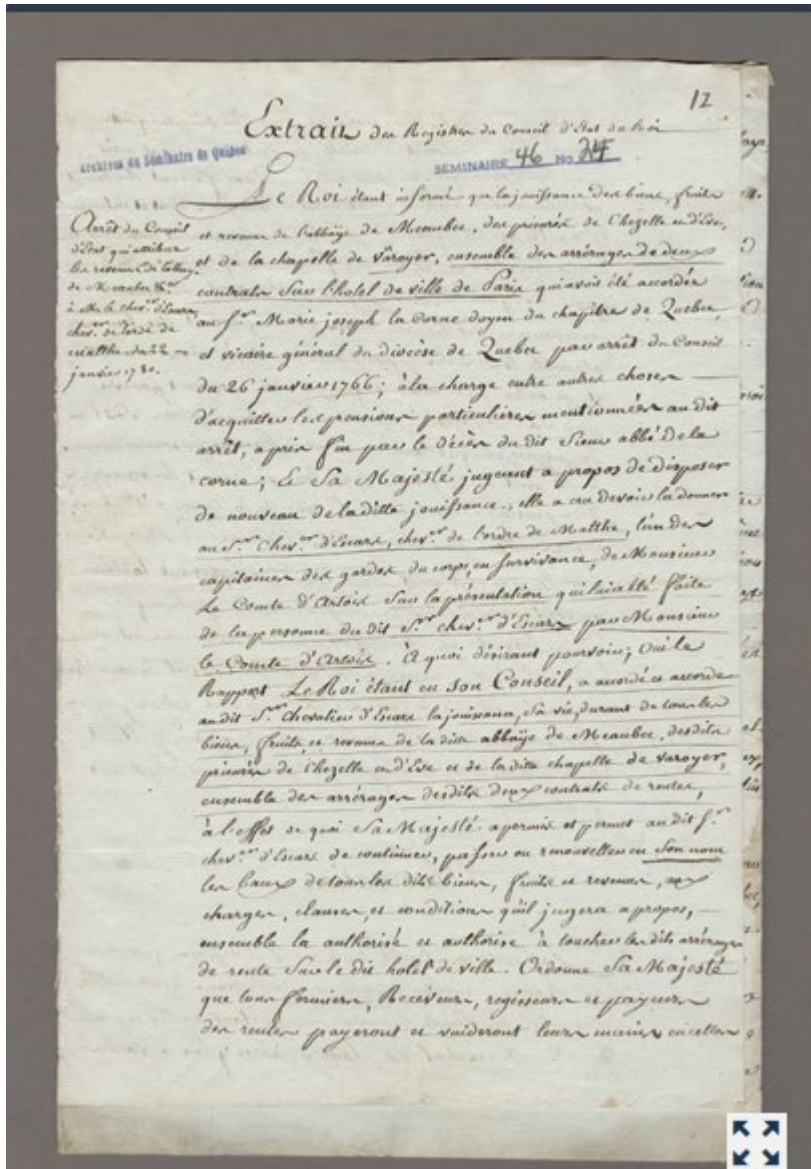 12
Extrait des Registres du Conseil d'Etat du Roi
Archives du Séminaire de Québec
SÉMINAIRE 46 No 24
Le Roi étant informé que la jouissance des biens, fruits
et revenus de l'abbaÿe de Meaubec, des prieurés de Chezelle et d'Eve,
et de la chapelle de Varoyer, ensemble des arrérages de deux
contrats sur l'hotel de ville de Paris qui avoit été accordée
au Sr. Marie joseph la Corne doyen du chapitre de Quebec,
et vicaire général du diocèse de Quebec par arrêt du Conseil
du 26 janvier 1766; à la charge entre autres choses
d'acquitter les pensions particulières mentionnées au dit
arrêt, a pris fin par le décès du dit Sieur abbé de la
corne; Et Sa Majesté jugeant a propos de disposer
de nouveau de la ditte jouissance, elle a cru devoir la donner
au Sr. Chevr. d'Escars, chevr. de l'ordre de Malthe, l'un des
capitaines des gardes du corps, en survivance, de Monsieur
Le Comte d'Artois sur la présentation qui lui a été faite
de la personne du dit Sr. chevr. d'Escars par Monsieur
le Comte d'Artois. À quoi désirant pourvoir; Oui le
Rapport Le Roi étant en son Conseil, a accordé et accorde
au dit Sr. Chevalier d'Escars la jouissance, sa vie, durant de tous les
biens, fruits, et revenus de la ditte abbaÿe de Meaubec, desdits
prieurés de Chezelle et d'Eve et de la ditte chapelle de Varoyer,
ensemble des arrérages desdits deux contrats de rentes,
à l'effet de quoi Sa Majesté a permis et permet au dit Sr.
chevr. d'Escars de continuer, passer ou renouveller en son nom
les baux de tous les dits biens, fruits et revenus, aux
charges, clauses, et conditions qu'il jugera a propos,
ensemble la authorisé et authorise à toucher les dits arrérages
de rente sur le dit hotel de ville. Ordonne Sa Majesté
que tous fermiers, Receveurs, regisseurs et payeurs
des rentes payeront et vuideront leurs mains en celles
Arrêt du Conseil
d'Etat qui attribue
les revenus de l'abbaye
de Meaubec &ca.
à Mr. le chevr. d'Escars
chevr. de l'ordre de
malthe du 22
janvier 1780.